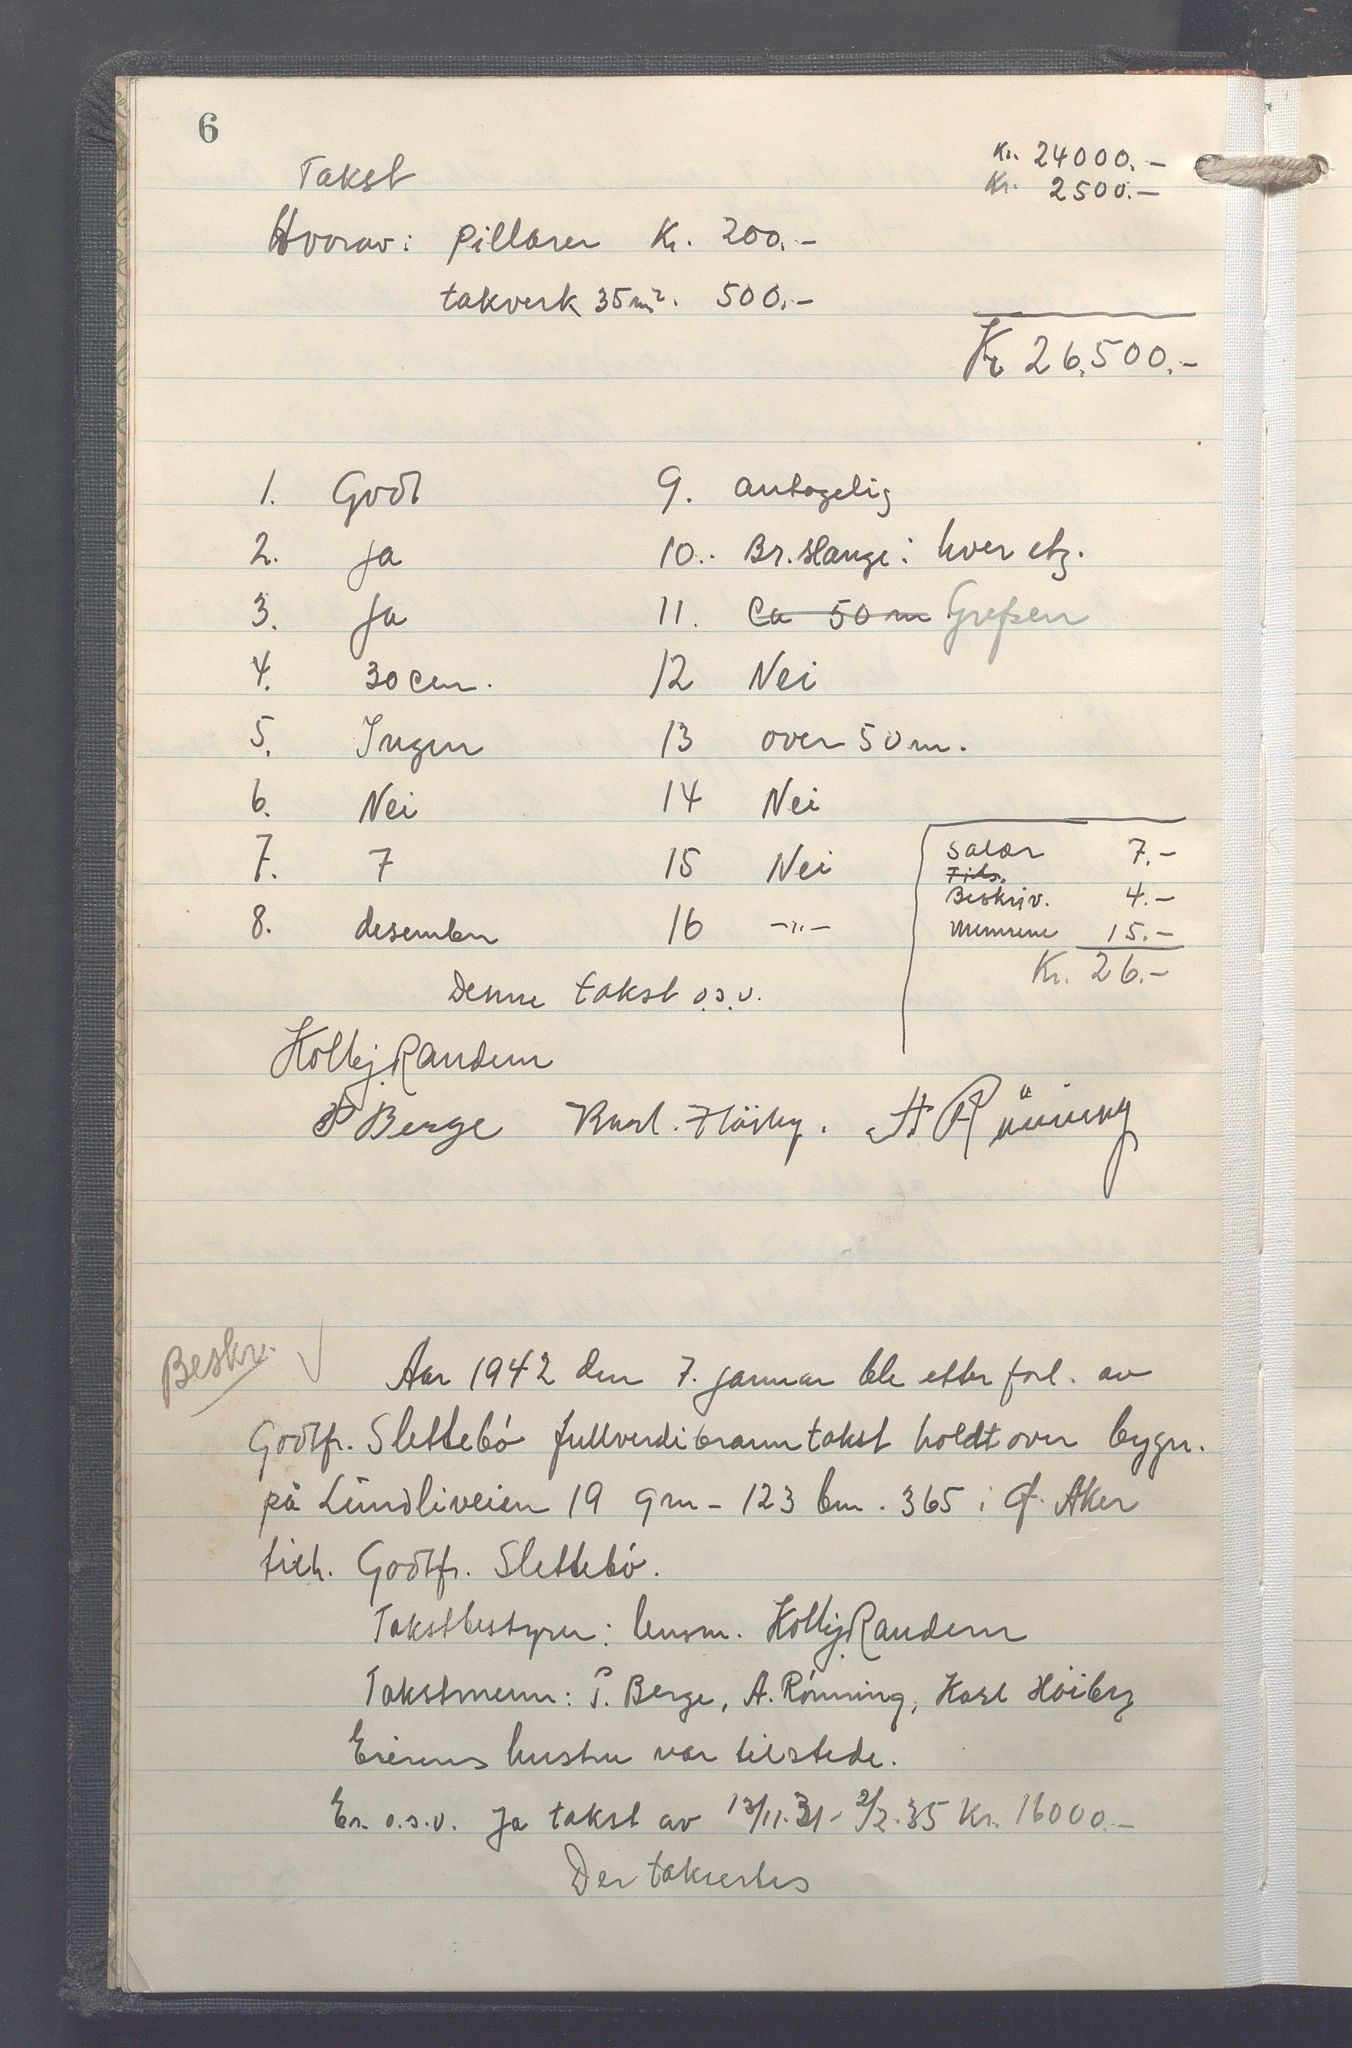 6
Takst Kr. 24000.-
Kr. 2500.-
Hvorav: pillarer Kr. 200.-
takverk 35 m². 500.-
Kr 26,500.-
1. Godt 9. antagelig
2. Ja 10. Br. slange: hver etg.
3. Ja 11. Ca 50 m Grefsen
4. 30 cm. 12 Nei
5. Ingen 13 over 50 m.
6. Nei 14 Nei
7. 7 15 Nei
8. desember 16 -"-
Salær 7.-
Tils.
Beskriv. 4.-
Mennene 15.-
Kr. 26.-
Denne takst o.s.v.
Holtej Randem
P Berge Karl. Höiby. A Rönning
Beskr. √
Aar 1942 den 7. januar ble etter forl. av
Godtfr. Slettebó fullverdibranntakst holdt over bygn.
på Lundliveien 19 gm - 123 bm. 365 i Ø. Aker
tilh. Godtfr. Slettebó.
Takstbestyrer: lensm. Holtej Randem
Takstmenn: P. Berge, A. Rónning, Karl Hóiby
Eierens hustru var tilstede.
Er. o.s.v. Ja takst av 12/11.31 - 2/2.35 Kr. 16000.-
Der taksertes